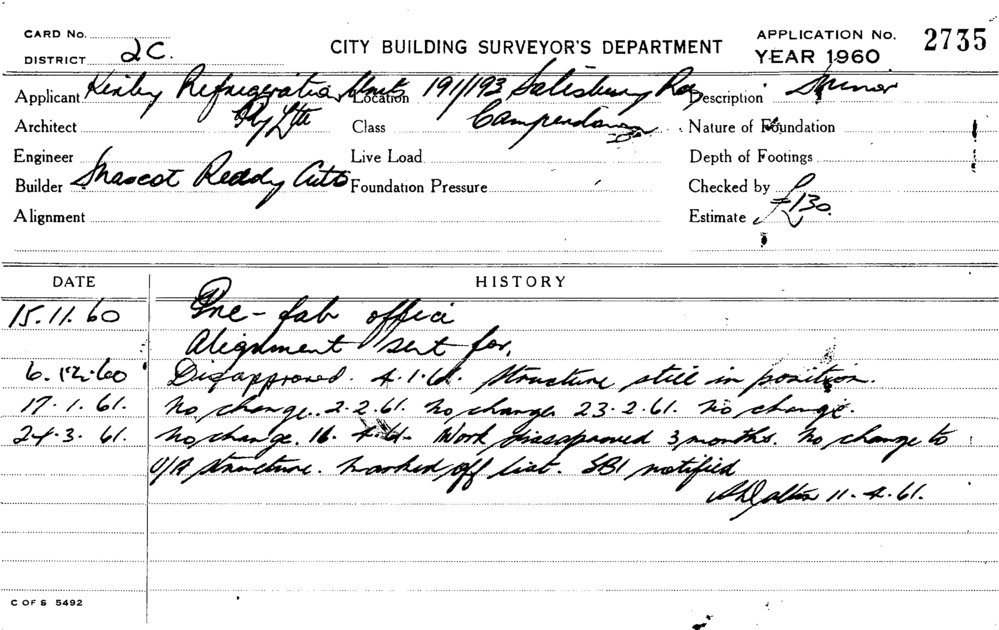 CARD No.
DISTRICT 2C.
CITY BUILDING SURVEYOR'S DEPARTMENT
APPLICATION No. 2735
YEAR 1960
Applicant Kirby Refrigeration Units Location 191/193 Salisbury Rd Description Minor
Architect Pty Ltd Class Camperdown Nature of Foundation
Engineer Live Load Depth of Footings
Builder Mascot Ready Cuts Foundation Pressure Checked by
Alignment Estimate £130.
DATE HISTORY
15.11.60 Pre-fab office
Alignment sent for.
6.12.60 Disapproved. 4.1.61. Structure still in position.
17.1.61. No change. 2.2.61. No change 23.2.61. No change.
24.3.61. No change. 16.4.61- Work disapproved 3 months. No change to
U/A structure. Marked off list. SBI notified
Dalton 11.4.61.
C OF S 5492